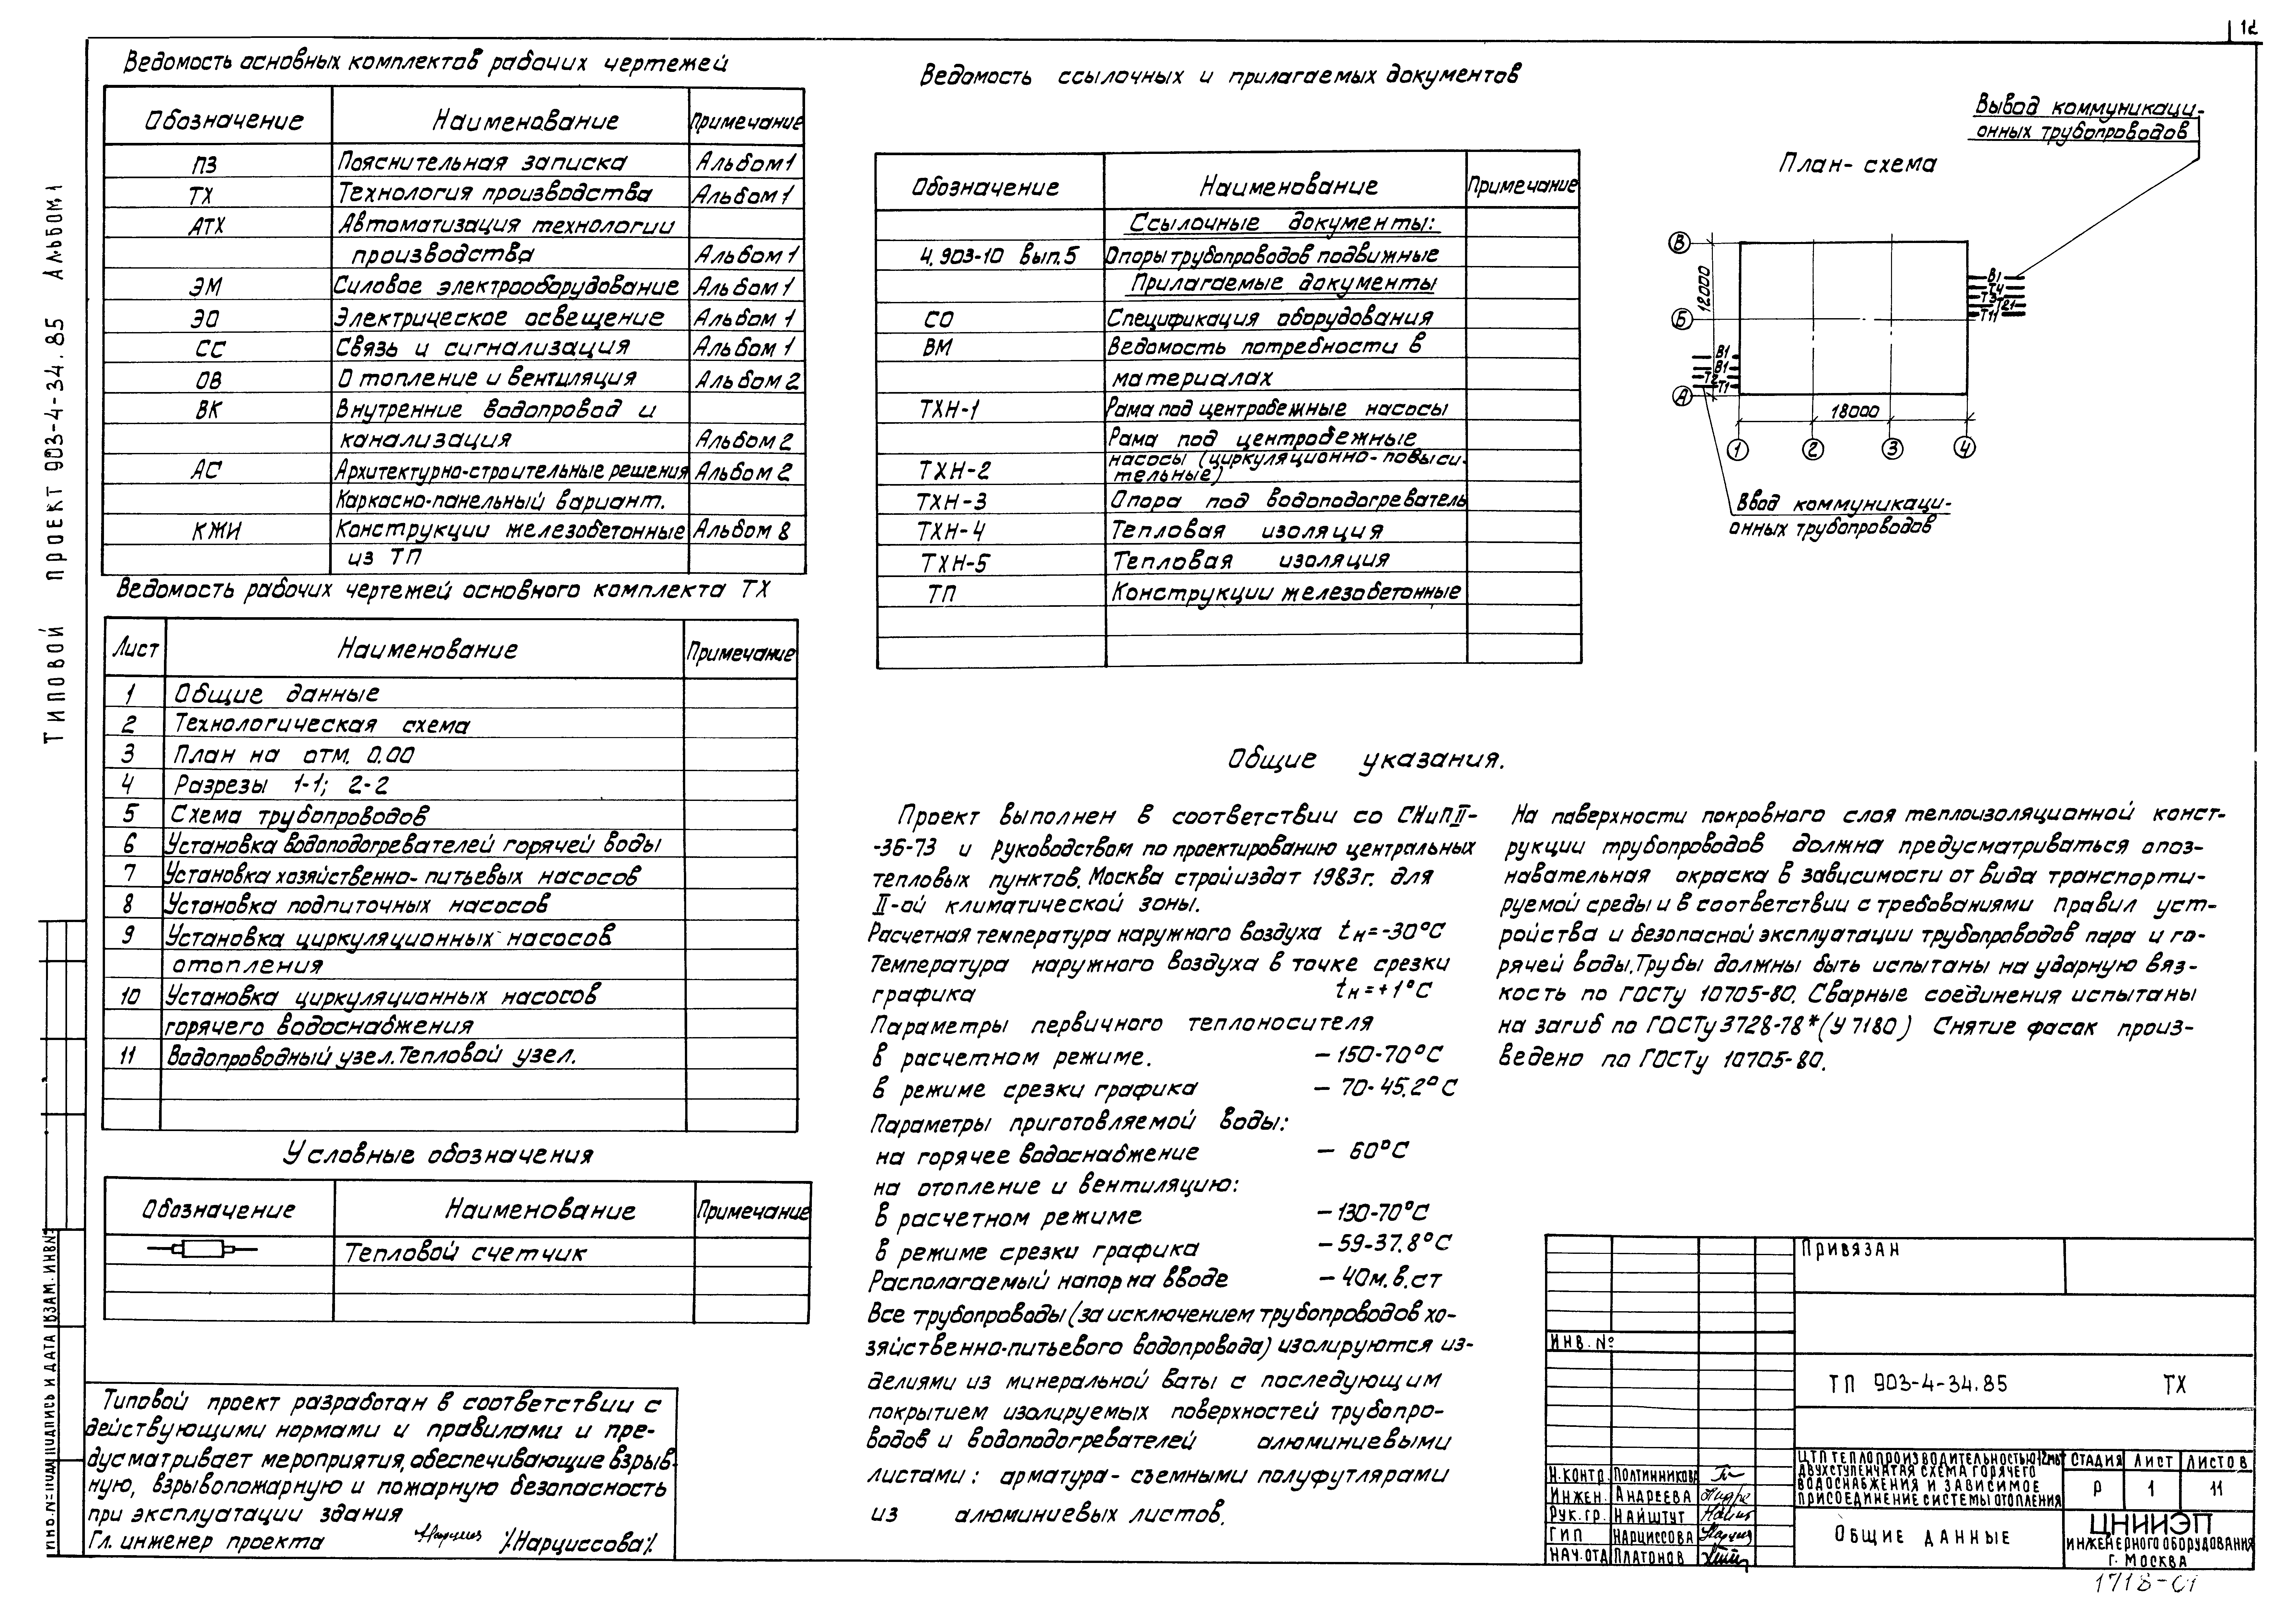 12
Типовой проект 903-4-34.85 Альбом 1
Ведомость основных комплектов рабочих чертежей
Обозначение Наименование Примечание
ПЗ Пояснительная записка Альбом 1
ТХ Технология производства Альбом 1
АТХ Автоматизация технологии
производства Альбом 1
ЭМ Силовое электрооборудование Альбом 1
ЭО Электрическое освещение Альбом 1
СС Связь и сигнализация Альбом 1
ОВ Отопление и вентиляция Альбом 2
ВК Внутренние водопровод и
канализация Альбом 2
АС Архитектурно-строительные решения Альбом 2
Каркасно-панельный вариант.
КЖИ Конструкции железобетонные Альбом 8
из ТП
Ведомость рабочих чертежей основного комплекта ТХ
Лист Наименование Примечание
1 Общие данные
2 Технологическая схема
3 План на отм. 0.00
4 Разрезы 1-1; 2-2
5 Схема трубопроводов
6 Установка водоподогревателей горячей воды
7 Установка хозяйственно-питьевых насосов
8 Установка подпиточных насосов
9 Установка циркуляционных насосов
отопления
10 Установка циркуляционных насосов
горячего водоснабжения
11 Водопроводный узел. Тепловой узел.
Условные обозначения
Обозначение Наименование Примечание
Тепловой счетчик
Типовой проект разработан в соответствии с
действующими нормами и правилами и пре-
дусматривает мероприятия, обеспечивающие взрыв-
ную, взрывопожарную и пожарную безопасность
при эксплуатации здания
Гл. инженер проекта /Нарциссова/
Ведомость ссылочных и прилагаемых документов
Обозначение Наименование Примечание
Ссылочные документы:
4.903-10 вып.5 Опоры трубопроводов подвижные
Прилагаемые документы
СО Спецификация оборудования
ВМ Ведомость потребности в
материалах
ТХН-1 Рама под центробежные насосы
Рама под центробежные
ТХН-2 насосы (циркуляционно-повыси-
тельные)
ТХН-3 Опора под водоподогреватель
ТХН-4 Тепловая изоляция
ТХН-5 Тепловая изоляция
ТП Конструкции железобетонные
Вывод коммуникаци-
онных трубопроводов
План-схема
В
Б
А
12000
18000
1 2 3 4
В1
Т4
Т3
Т21
Т11
В1
В1
Т2
Т1
Ввод коммуникаци-
онных трубопроводов
Общие указания.
Проект выполнен в соответствии со СНиП II-
-36-73 и руководством по проектированию центральных
тепловых пунктов. Москва стройиздат 1983г. для
II-ой климатической зоны.
Расчетная температура наружного воздуха tн=-30°С
Температура наружного воздуха в точке срезки
графика tн=+1°С
Параметры первичного теплоносителя
в расчетном режиме. – 150-70°С
в режиме срезки графика – 70-45.2°С
Параметры приготовляемой воды:
на горячее водоснабжение – 60°С
на отопление и вентиляцию:
в расчетном режиме – 130-70°С
в режиме срезки графика – 59-37.8°С
Располагаемый напор на вводе – 40м.в.ст
Все трубопроводы (за исключением трубопроводов хо-
зяйственно-питьевого водопровода) изолируются из-
делиями из минеральной ваты с последующим
покрытием изолируемых поверхностей трубопро-
водов и водоподогревателей алюминиевыми
листами: арматура-съемными полуфутлярами
из алюминиевых листов.
На поверхности покровного слоя теплоизоляционной конст-
рукции трубопроводов должна предусматриваться опоз-
навательная окраска в зависимости от вида транспорти-
руемой среды и в соответствии с требованиями Правил уст-
ройства и безопасной эксплуатации трубопроводов пара и го-
рячей воды. Трубы должны быть испытаны на ударную вяз-
кость по ГОСТу 10705-80. Сварные соединения испытаны
на загиб по ГОСТу 3728-78*(У 7180) Снятие фасок произ-
ведено по ГОСТу 10705-80.
Привязан
Инв. №
ТП 903-4-34.85 ТХ
ЦТП теплопроизводительностью 12мвт
двухступенчатая схема горячего
водоснабжения и зависимое
присоединение системы отопления
Стадия Лист Листов
Р 1 11
Н.контр. Полтинникова
Инжен. Андреева
Рук.гр. Найштут
ГИП Нарциссова
Нач.отд Платонов
Общие данные
ЦНИИЭП
инженерного оборудования
г. Москва
1718-01
Инв.№ подл Подпись и дата Взам.инв№